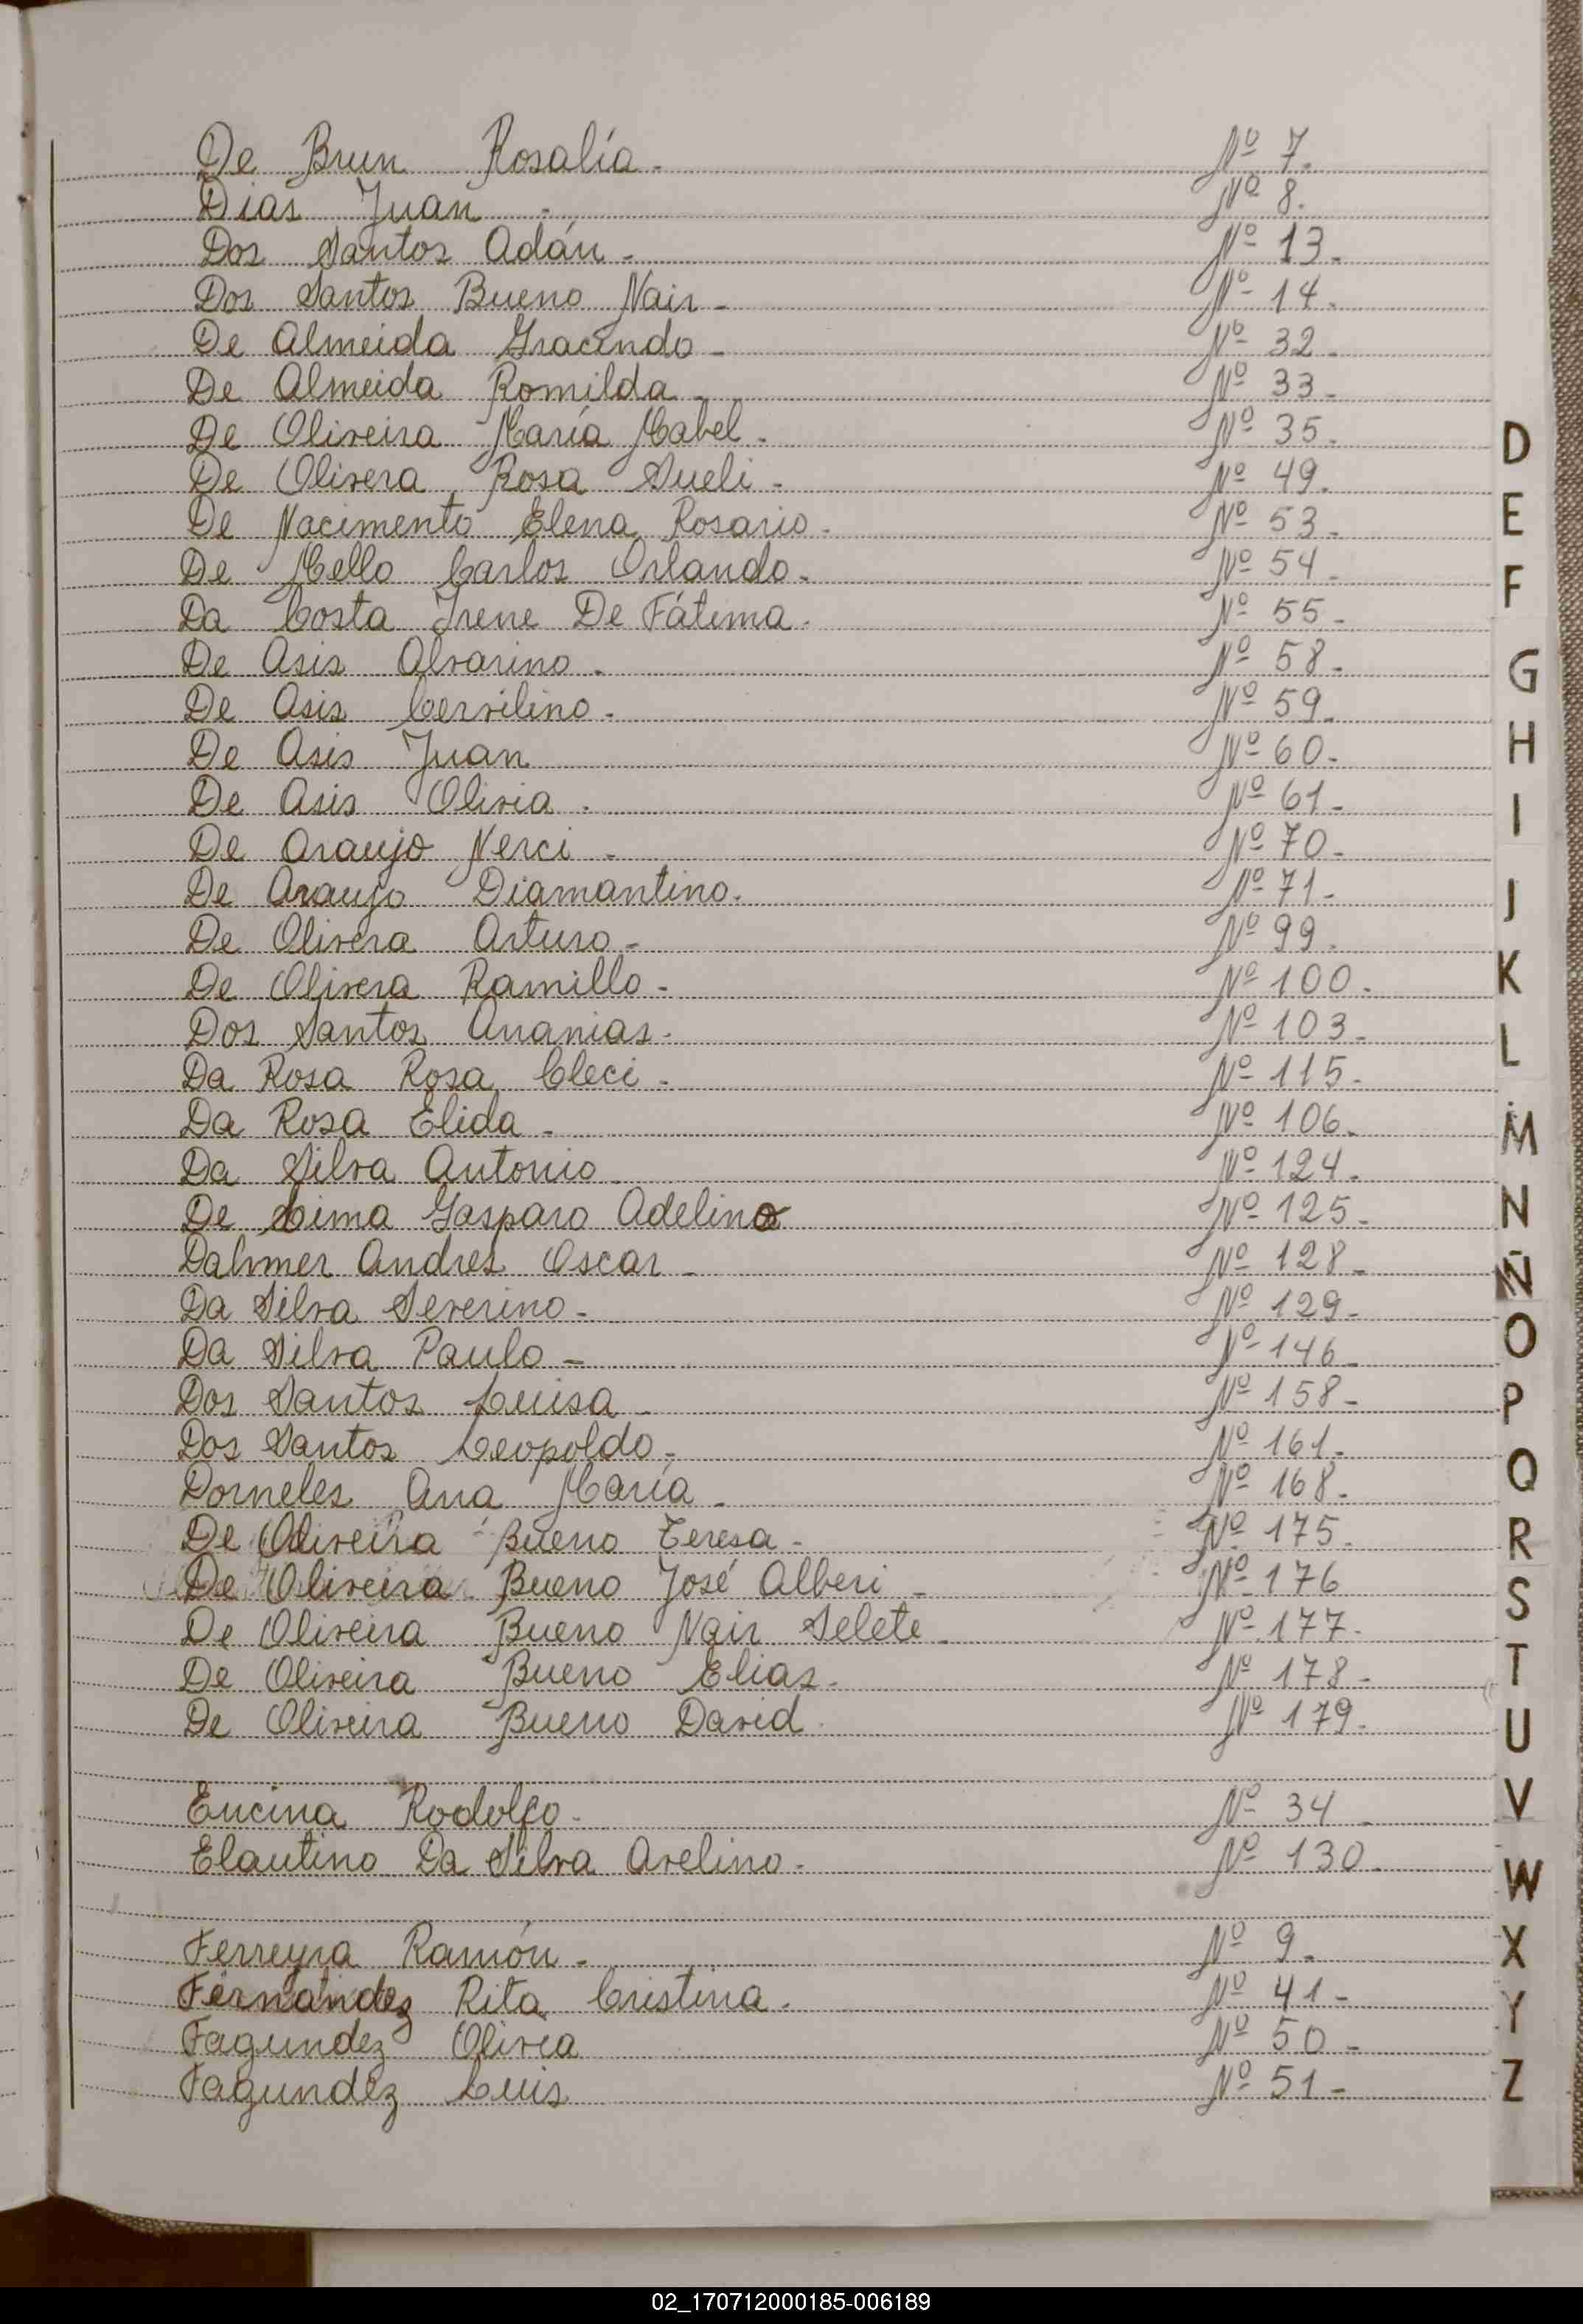 De Brun Rosalía. Nº 7.
Dias Juan - Nº 8.
Dos Santos Adán - Nº 13.
Dos Santos Bueno Nair - Nº 14.
De Almeida Gracindo - Nº 32.
De Almeida Romilda - Nº 33.
De Oliveira María Mabel. Nº 35.
De Olivera Rosa Sueli - Nº 49.
De Nacimento Elena Rosario. Nº 53.
De Mello Carlos Orlando. Nº 54.
Da Costa Irene De Fátima. Nº 55.
De Asis Alvarino. Nº 58.
De Asis Cervilino. Nº 59.
De Asis Juan Nº 60.
De Asis Olivia. Nº 61.
De Araujo Nerci - Nº 70.
De Araujo Diamantino. Nº 71.
De Olivera Arturo - Nº 99.
De Olivera Ramillo - Nº 100.
Dos Santos Ananias. Nº 103.
Da Rosa Rosa Cleci - Nº 115.
Da Rosa Elida - Nº 106.
Da Silva Antonio Nº 124.
De Lima Gasparo Adelino Nº 125.
Dahmer Andres Oscar - Nº 128.
Da Silva Severino - Nº 129.
Da Silva Paulo - Nº 146
Dos Santos Luisa - Nº 158.
Dos Santos Leopoldo - Nº 161.
Dorneles Ana María - Nº 168.
De Oliveira Bueno Teresa - Nº 175.
De Oliveira Bueno José Alberi - Nº 176
De Oliveira Bueno Nair Selete Nº 177.
De Oliveira Bueno Elias. Nº 178.
De Oliveira Bueno David. Nº 179.
Encina Rodolfo. Nº 34
Elautino Da Silva Avelino. Nº 130.
Ferreyra Ramón - Nº 9.
Fernandez Rita Cristina. Nº 41.
Fagundez Olivia Nº 50.
Fagundez Luis Nº 51.
D
E
F
G
H
I
J
K
L
M
N
Ñ
O
P
Q
R
S
T
U
V
W
X
Y
Z
02_170712000185-006189